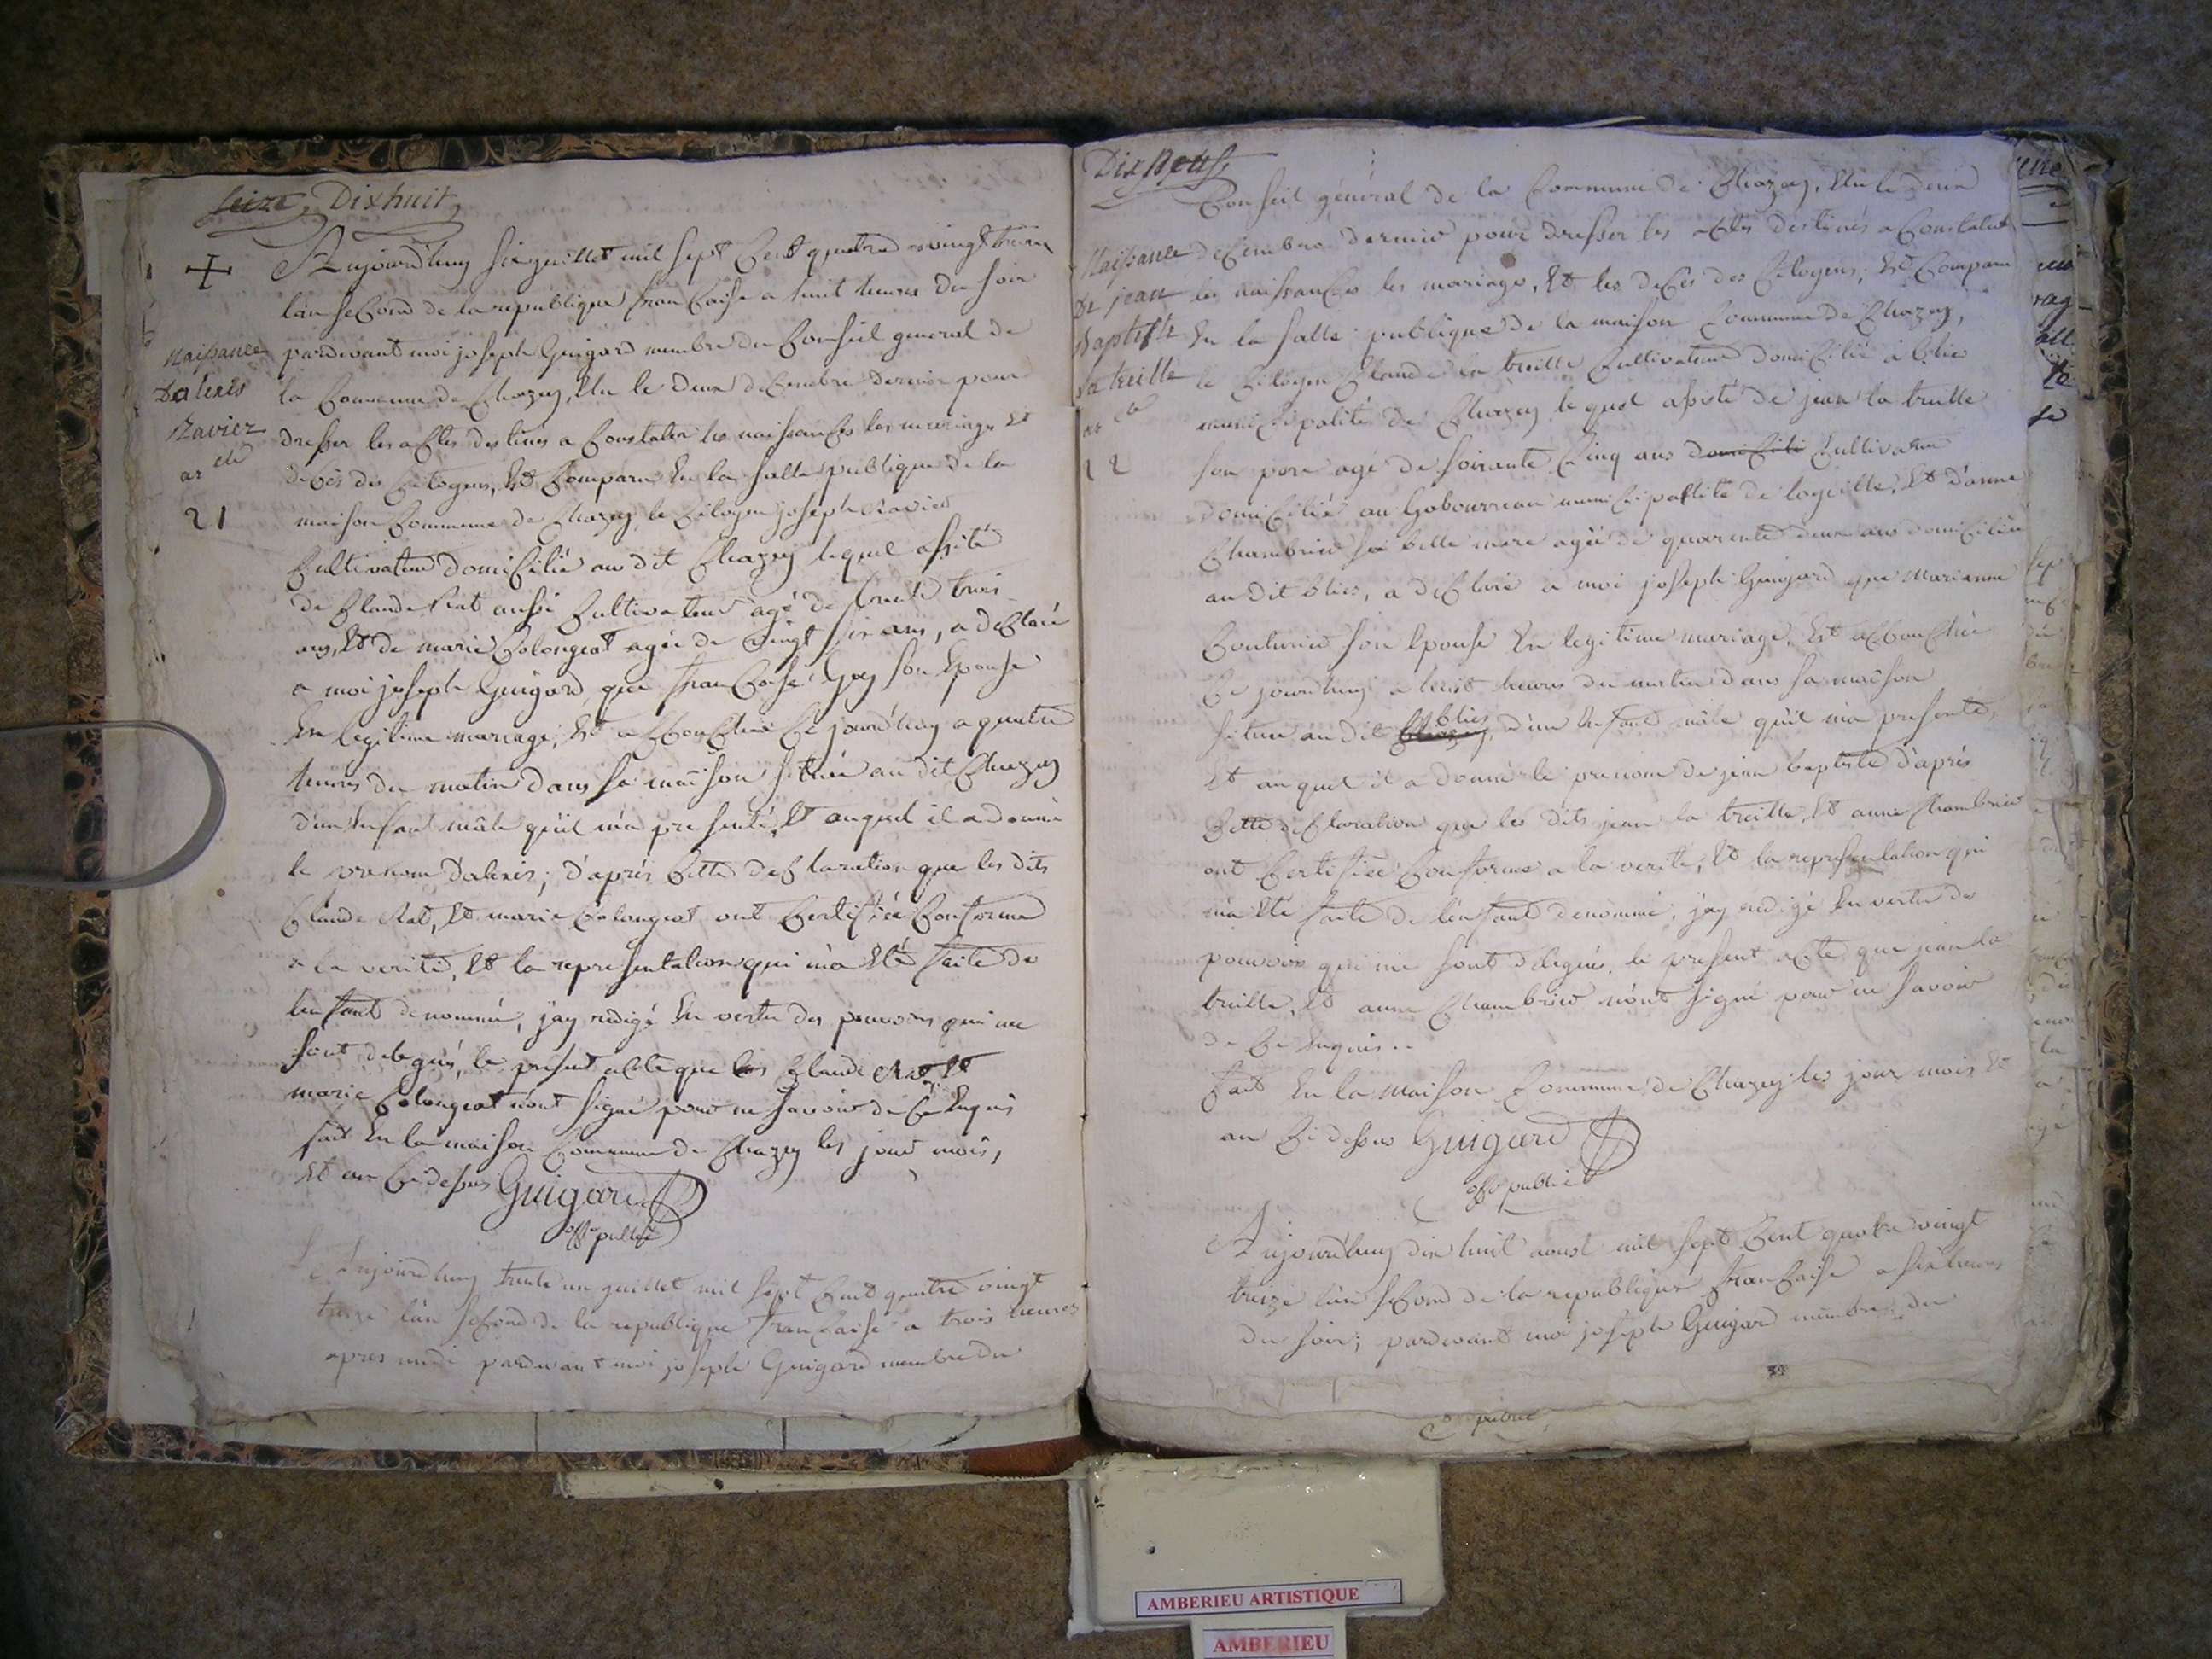 Seize Dixhuit
Aujourd'huy six juillet mil sept Cent quatre vingt treize
l'an second de la republique francaise a huit heures du soir
Naissance
D'alexis
Ravier
ar cle
21
pardevant moi joseph Guigard membre du Conseil general de
la Commune de Chazey, Elu le deux decembre dernier pour
dresser les actes destinés a Constater les naissances les mariages Et
decès des Citoyens, Est Comparu En la salle publique de la
maison Commune de Chazey le Citoyen joseph Ravier
Cultivateur domicilié au dit Chazey lequel assité
de Claude Rat aussi Cultivateur agé de trente trois
ans, Et de marie Colongeat agée de vingt six ans, a declaré
a moi joseph Guigard, que francoise Guy son Epouse
En legitime mariage, Est accouchée Ce jourd'huy a quatre
heures du matin dans sa maison située au dit Chazey
d'un Enfant mâle qu'il m'a presenté, Et auquel il a donné
le prenom d'alexis; d'après Cette declaration que les dits
Claude Rat, Et marie Colongeat ont Certifiée Conforme
a la verité, Et la representation qui m'a Eté faite de
l'enfant denommé, j'ay redigé En vertu des pouvoirs qui me
sont delegués, le present acte que les Claude Rat, Et
marie Colongeat n'ont signé pour ne savoir de Ce Enquis
fait En la maison Commune de Chazey les jour mois,
Et an Ci dessus Guigard
offr public
Aujourd'huy trente un juillet mil sept Cent quatre vingt
treize l'an second de la republique francaise a trois heures
apres midi pardevant moi joseph Guigard membre du
Dix Neuf
Conseil général de la Commune de Chazey, Elu le deux
Naissance
De jean
Baptiste
La treille
ar cle
22
decembre dernier pour dresser les actes destinés a Constater
les naissances les mariages, Et les decès des Citoyens; Est Comparu
En la salle publique de la maison Commune de Chazey,
le Citoyen Claude la treille Cultivateur domicilié à blies
municipalité de Chazey lequel assité de jean la treille
son pere agé de soixante Cinq ans domicilié Cultivateur
domicilié au Gabourreau municipallité de lagnille, Et d'anne
Chambrier sa belle mere agée de quarente deux ans domiciliée
au dit blies, a declaré a moi joseph Guigard que Marianne
Couturier son Epouse En legitime mariage, Est accouchée
Ce jourd'huy a huit heures du matin dans sa maison
située au dit Chazey blies, d'un Enfant mâle qu'il m'a presenté,
Et auquel il a donné le prenom de jean baptiste d'après
Cette declaration que les dits jean la treille, Et anne Chambrier
ont Certifiée Conforme a la verité, Et la representation qui
m'a Eté faite de l'enfant denommé, j'ay redigé En vertu des
pouvoirs qui me sont delegués, le present acte que jean la
treille, Et anne Chambrier n'ont signé pour ne savoir
de Ce Enquis..
fait En la maison Commune de Chazey les jour mois Et
an Ci dessus Guigard
offr public
Aujourd'huy dix huit aoust mil sept Cent quatre vingt
treize l'an second de la republique francaise a six heures
du soir; pardevant moi joseph Guigard membre du
public
AMBERIEU ARTISTIQUE
AMBERIEU